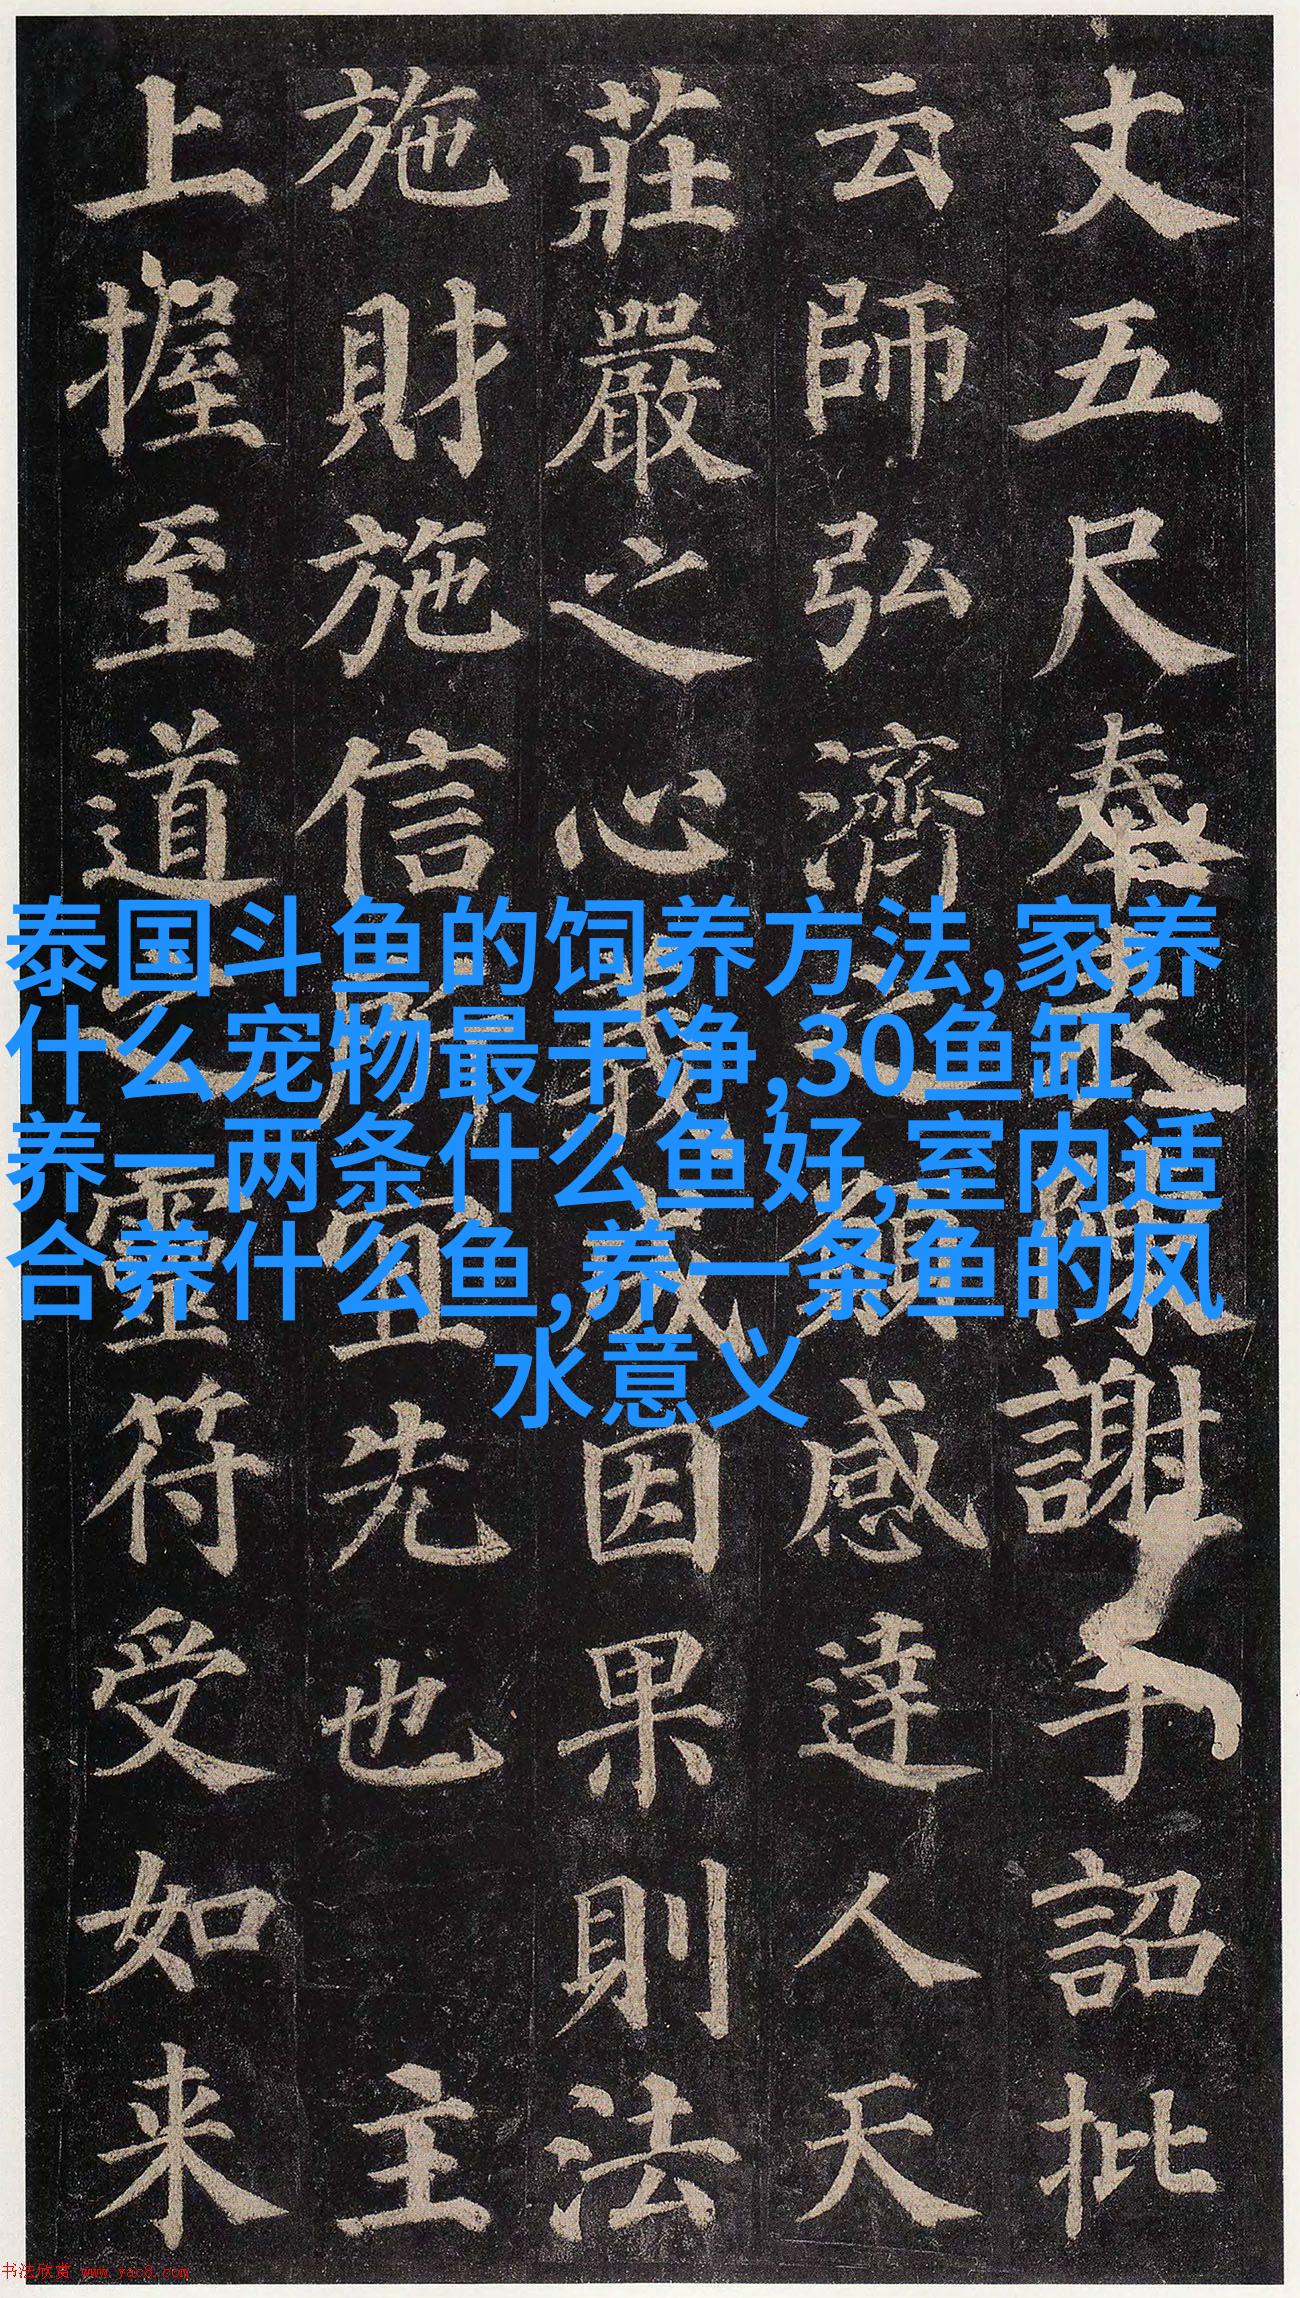 丈五尺奉表陳謝手詔批
云師弘濟之願感達人天
莊嚴之心因果則法
施財施信所宜先也 主
上握至道之靈符受如来
泰国斗鱼的饲养方法,家养
什么宠物最干净,30鱼缸
养一两条什么鱼好,室内适
合养什么鱼,养一条鱼的风
水意义
书法欣赏 www.yac8.com